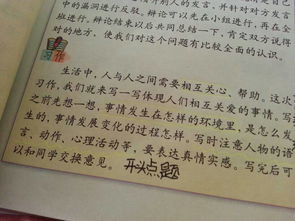 别人的发言，并针对对方发言
中的漏洞进行反驳。辩论可以先在小组进行，再在全
班进行。辩论结束以后共同总结一下，肯定双方说得
对的地方，使我们对这个问题有比较全面的认识。
习作
生活中，人与人之间需要相互关心、帮助。这次
习作，我们就来写一写体现人们相互关爱的事情。写
之前先想一想，事情发生在怎样的环境里，是怎么发
生的，事情发展变化的过程怎样。写时注意人物的语
言、动作、心理活动等，要表达真情实感。写完后可
以和同学交换意见。 开头点题